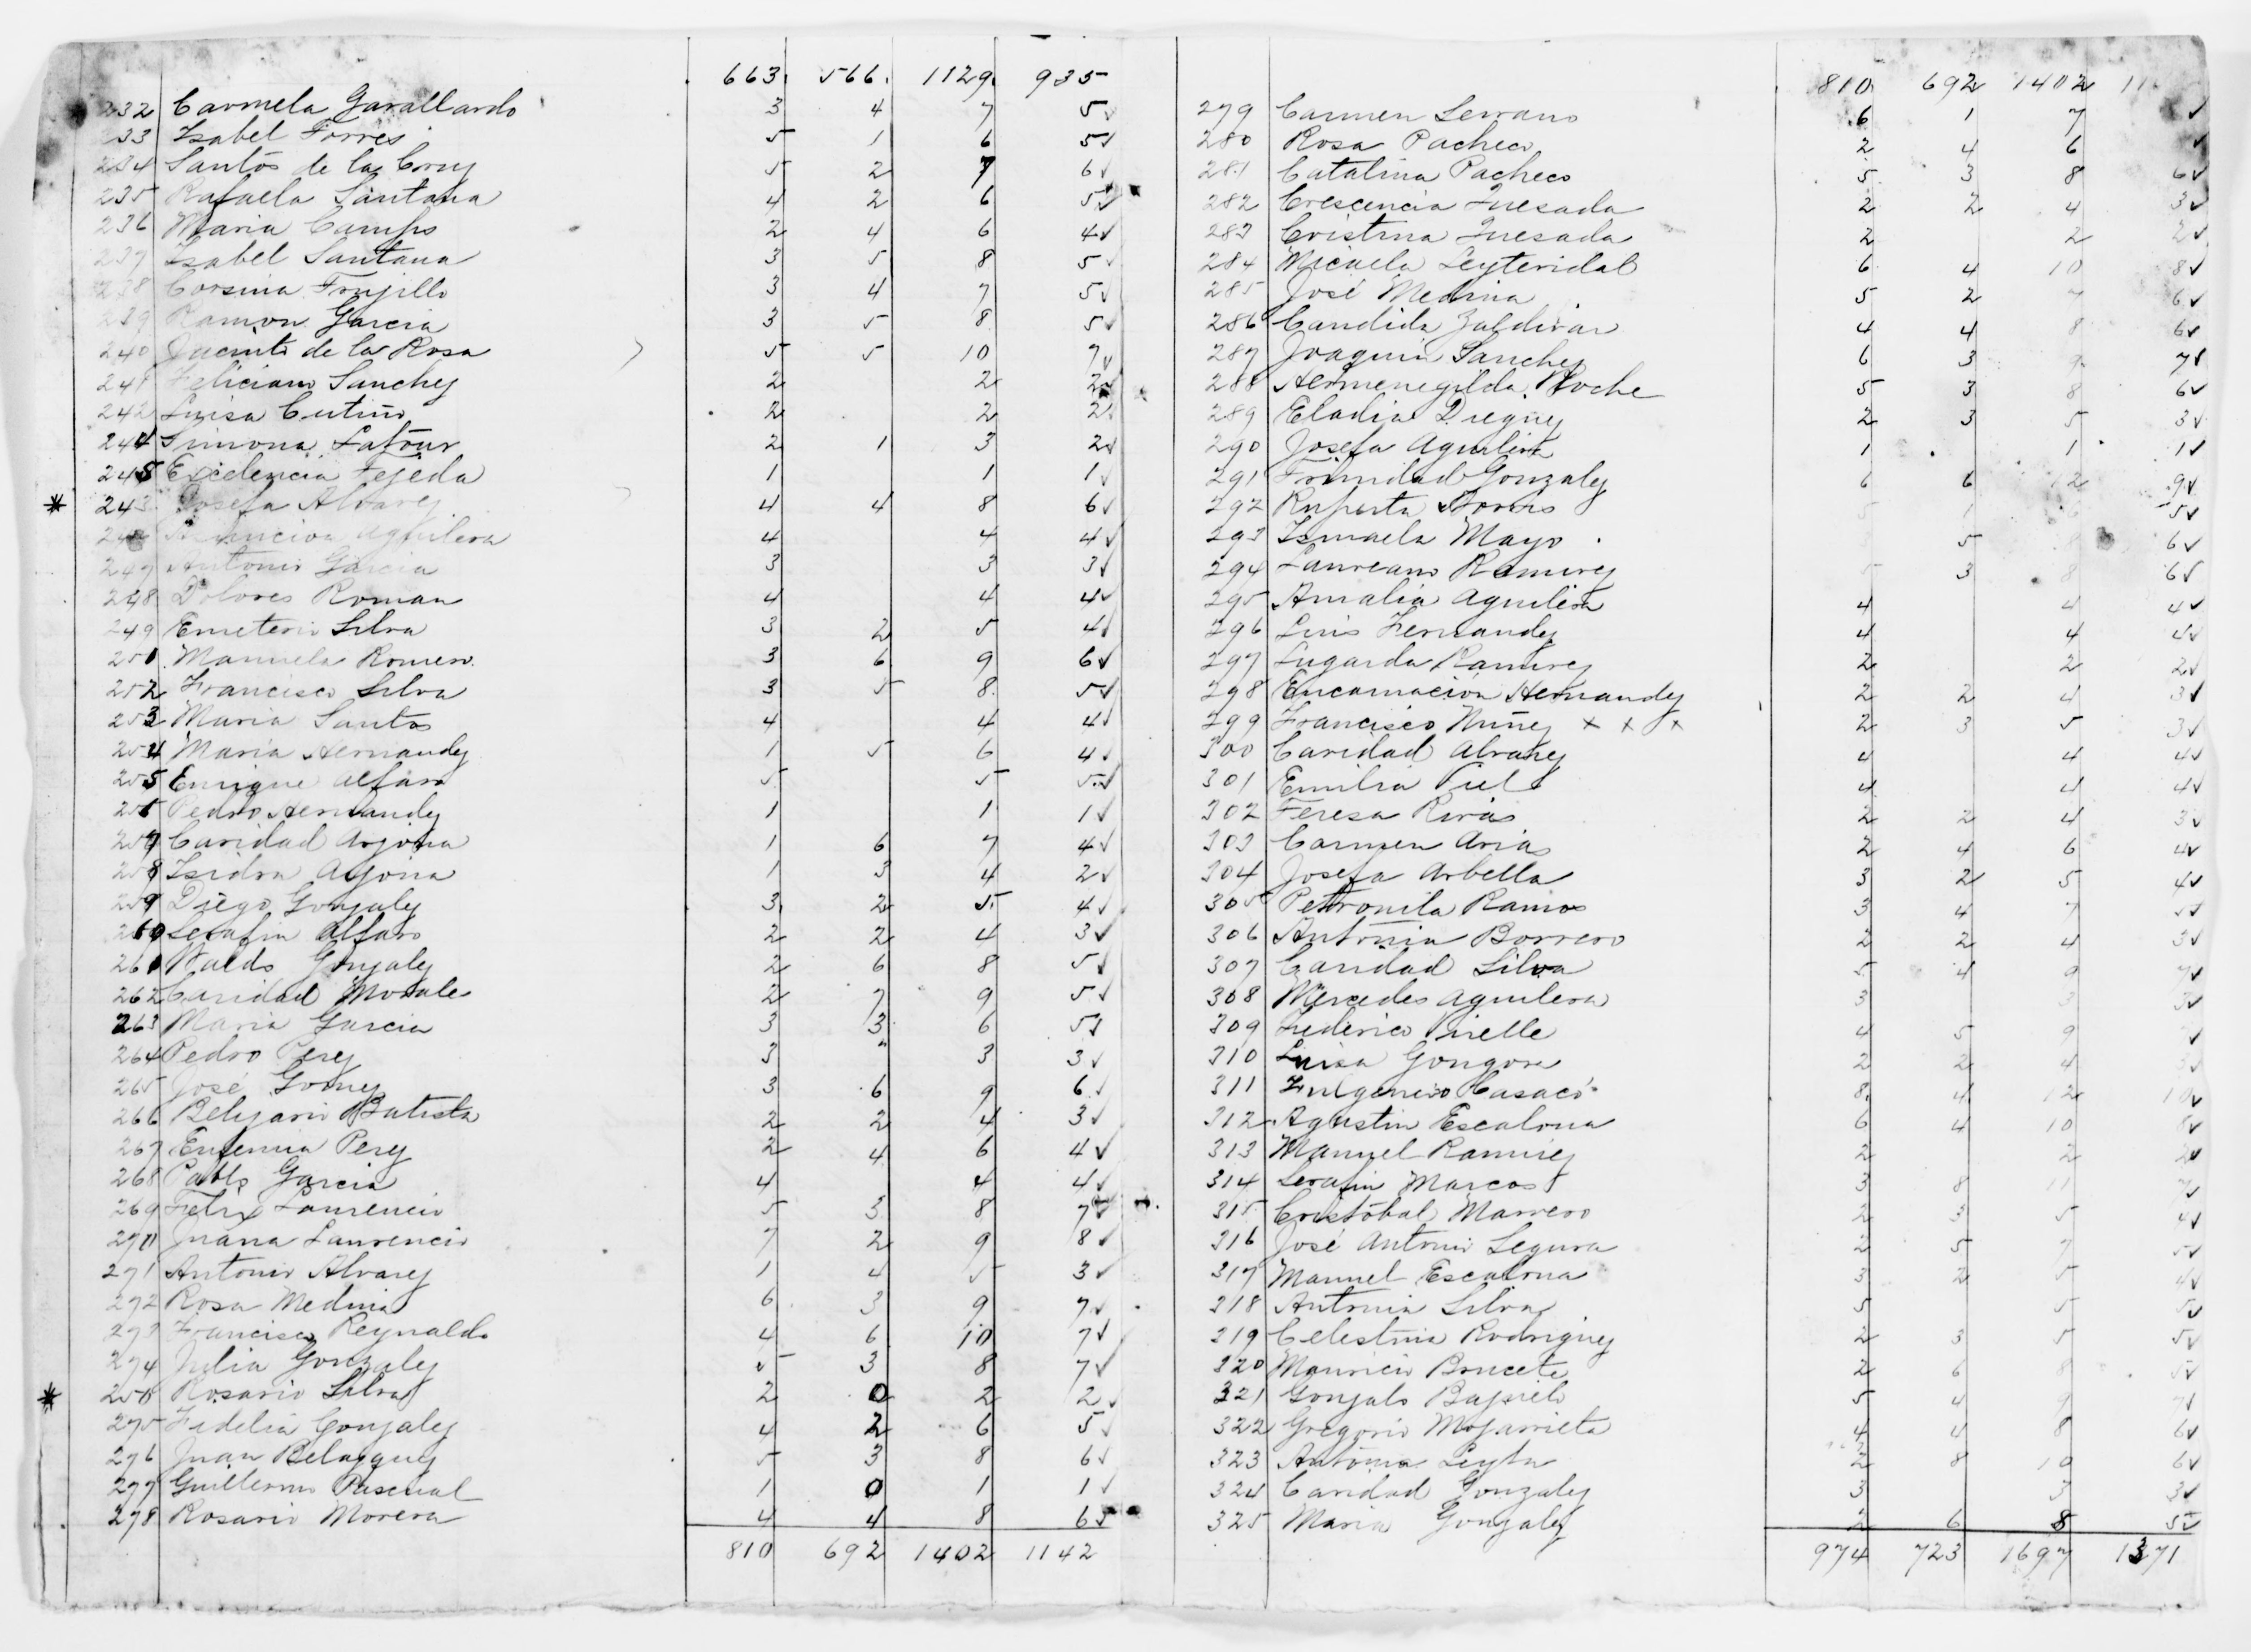 663. 566. 1129. 935
232 Carmela Gavallardo 3 4 7 5✓
233 Isabel Torres 5 1 6 5✓
234 Santos de la Cruz 5 2 7 6✓
235 Rafaela Santana 4 2 6 5✓
236 Maria Camps 2 4 6 4✓
237 Isabel Santana 3 5 8 5✓
238 Corsina Trujillo 3 4 7 5✓
239 Ramon Garcia 3 5 8 5✓
240 Jacinto de la Rosa 5 5 10 7✓
241 Feliciano Sanchez 2 2 2✓
242 Luisa Cutiño 2 2 2.
244 Simona Lafour 2 1 3 2✓
245 Excelencia Tejeda 1 1 1✓
* 243 Josefa Alvarez 4 4 8 6✓
Asuncion Aguilera 4 4 4✓
247 Antonio Garcia 3 3 3✓
248 Dolores Roman 4 4 4✓
249 Emeterio Silva 3 2 5 4✓
251 Manuela Romero 3 6 9 6✓
252 Francisco Silva 3 5 8 5✓
253 Maria Santos 4 4 4✓
254 Maria Hernandez 1 5 6 4✓
255 Enrique Alfaro 5 5 5✓
256 Pedro Hernandez 1 1 1✓
257 Caridad Arjona 1 6 7 4✓
258 Isidra Arjona 1 3 4 2✓
259 Diego Gonzalez 3 2 5 4✓
260 Serafin Alfaro 2 2 4 3✓
261 Waldo Gonzalez 2 6 8 5✓
262 Caridad Morales 2 7 9 5✓
263 Maria Garcia 3 3 6 5✓
264 Pedro Perez 3 " 3 3✓
265 José Gomez 3 6 9 6✓
266 Belizario Batista 2 2 4 3✓
267 Eufemia Perez 2 4 6 4✓
268 Pablo Garcia 4 4 4✓
269 Felix Laurencio 5 3 8 7✓
270 Juana Laurencio 7 2 9 8✓
271 Antonio Alvarez 1 4 5 3✓
272 Rosa Medina 6 3 9 7✓
273 Francisco Reynaldo 4 6 10 7✓
274 Julia Gonzalez 5 3 8 7✓
* 250 Rosario Silva 2 0 2 2✓
275 Fidelia Gonzalez 4 2 6 5✓
276 Juan Belazquez 5 3 8 6✓
277 Guillermo Pascual 1 0 1 1✓
278 Rosario Morera 4 4 8 6✓
810 692 1402 1142
810 692 1402 11
279 Carmen Serrano 6 1 7 ✓
280 Rosa Pacheco 2 4 6 ✓
281 Catalina Pacheco 5 3 8 6✓
282 Crescencia Quesada 2 2 4 3✓
283 Cristina Quesada 2 2 2✓
284 Micaela Leyteridal 6 4 10 8✓
285 José Medina 5 2 7 6✓
286 Candida Zaldivar 4 4 8 6✓
287 Joaquin Sanchez 6 3 9 7✓
288 Hermenegilda Noche 5 3 8 6✓
289 Eladia Dieguez 2 3 5 3✓
290 Josefa Aguilera 1 1 1✓
291 Trinidad Gonzalez 6 6 12 9✓
292 Ruperta Torres 5 1 6 5✓
293 Ismaela Mayo 5 8 6✓
294 Laureano Ramirez 5 3 8 6✓
295 Amalia Aguilera 4 4 4✓
296 Luis Fernandez 4 4 4✓
297 Lugarda Ramirez 2 2 2✓
298 Encarnación Hernandez 2 2 4 3✓
299 Francisco Nuñez x x x 2 3 5 3✓
300 Caridad Alvarez 4 4 4✓
301 Emilia Viel 4 4 4✓
302 Teresa Rivas 2 2 4 3✓
303 Carmen Arias 2 4 6 4✓
304 Josefa Arbella 3 2 5 4✓
305 Petronila Ramos 3 4 7 5✓
306 Antonia Borrero 2 2 4 3✓
307 Caridad Silva 5 4 9 7✓
308 Mercedes Aguilera 3 3 3✓
309 Federico Virelle 4 5 9 ✓
310 Luisa Gongora 2 2 4 3✓
311 Fulgencio Casacó 8 4 12 10✓
312 Agustin Escalona 6 4 10 8✓
313 Manuel Ramirez 2 2 2✓
314 Serafin Marcos 3 8 11 7✓
315 Cristóbal Marrero 2 3 5 4✓
316 José Antonio Segura 2 5 7 5✓
317 Manuel Escalona 3 2 5 4✓
318 Antonia Silva 5 5 5✓
319 Celestina Rodriguez 2 3 5 5✓
320 Mauricio Brucete 2 6 8 5✓
321 Gonzalo 5 4 9 7✓
322 Gregorio Mojarrieta 4 4 8 6✓
323 Antonia Leyba 2 8 10 6✓
324 Caridad Gonzalez 3 3 3✓
325 Maria Gonzalez 2 6 8 5✓
974 723 1697 1371